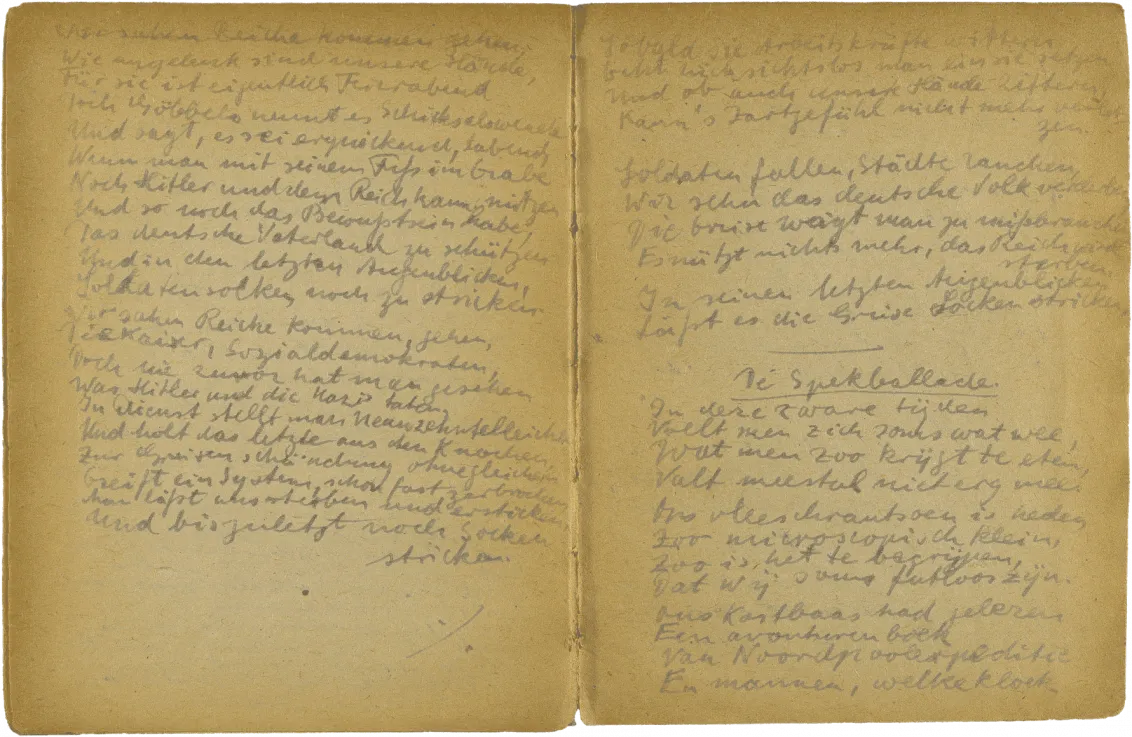 Wir sahen Reiche kommen, gehen,
Wie ungelenk sind unsere Hände,
Für sie ist eigentlich Feierabend
Doch Göbbels nennt es Schicksalswende
Und sagt, es sei erquickend, labend
Wenn man mit seinem Fuß im Grabe
Noch Hitler und dem Reich kann nützen
Und so noch das Bewußtsein habe,
Das deutsche Vaterland zu schützen
Und in den letzten Augenblicken,
Soldatensocken noch zu stricken
Wir sahen Reiche kommen, gehen,
Die Kaiser, Sozialdemokraten,
Doch nie zuvor hat man gesehen
Was Hitler und die Nazis taten
In Dienst stellt man Neunzehntelleichen
Und holt das letzte aus den Knochen,
Zur Greisenschändung ohnegleichen
Greift ein System, schon fast zerbrochen
Man läßt uns sterben und ersticken
Und bis zuletzt noch Socken
stricken.
Sobald sie Arbeitskräfte wittern
rücksichtslos man ein sie setzen
Und ob auch unsere Hände zittern,
Kann's Zartgefühl nicht mehr verlet-
zen.
Soldaten fallen, Städte rauchen
Wir sehn das deutsche Volk verderben
Die Greise wagt man zu mißbrauchen
Es nützt nichts mehr, das Reich wird
sterben.
In seinen letzten Augenblicken
Läßt es die Greise Socken stricken.
De Spekballade.
In deze zware tijden
Voelt men zich soms wat wee,
Wat men zoo krijgt te eten,
Valt meestal niet erg mee.
Ons vleeschrantsoen is heden
Zoo microscopisch klein,
Zoo is het te begrijpen,
Dat wij soms futloos zijn.
Ons Kostbaas had gelezen
Een avonturenboek
Van Noordpoolexpeditie
En mannen, welke kloek